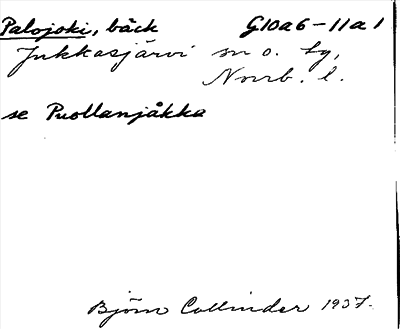 Palojoki, bäck G10a6-11a1
Jukkasjärvi sn o. tg,
Norrb. l.
se Puollanjåkka
Björn Collinder 1937.